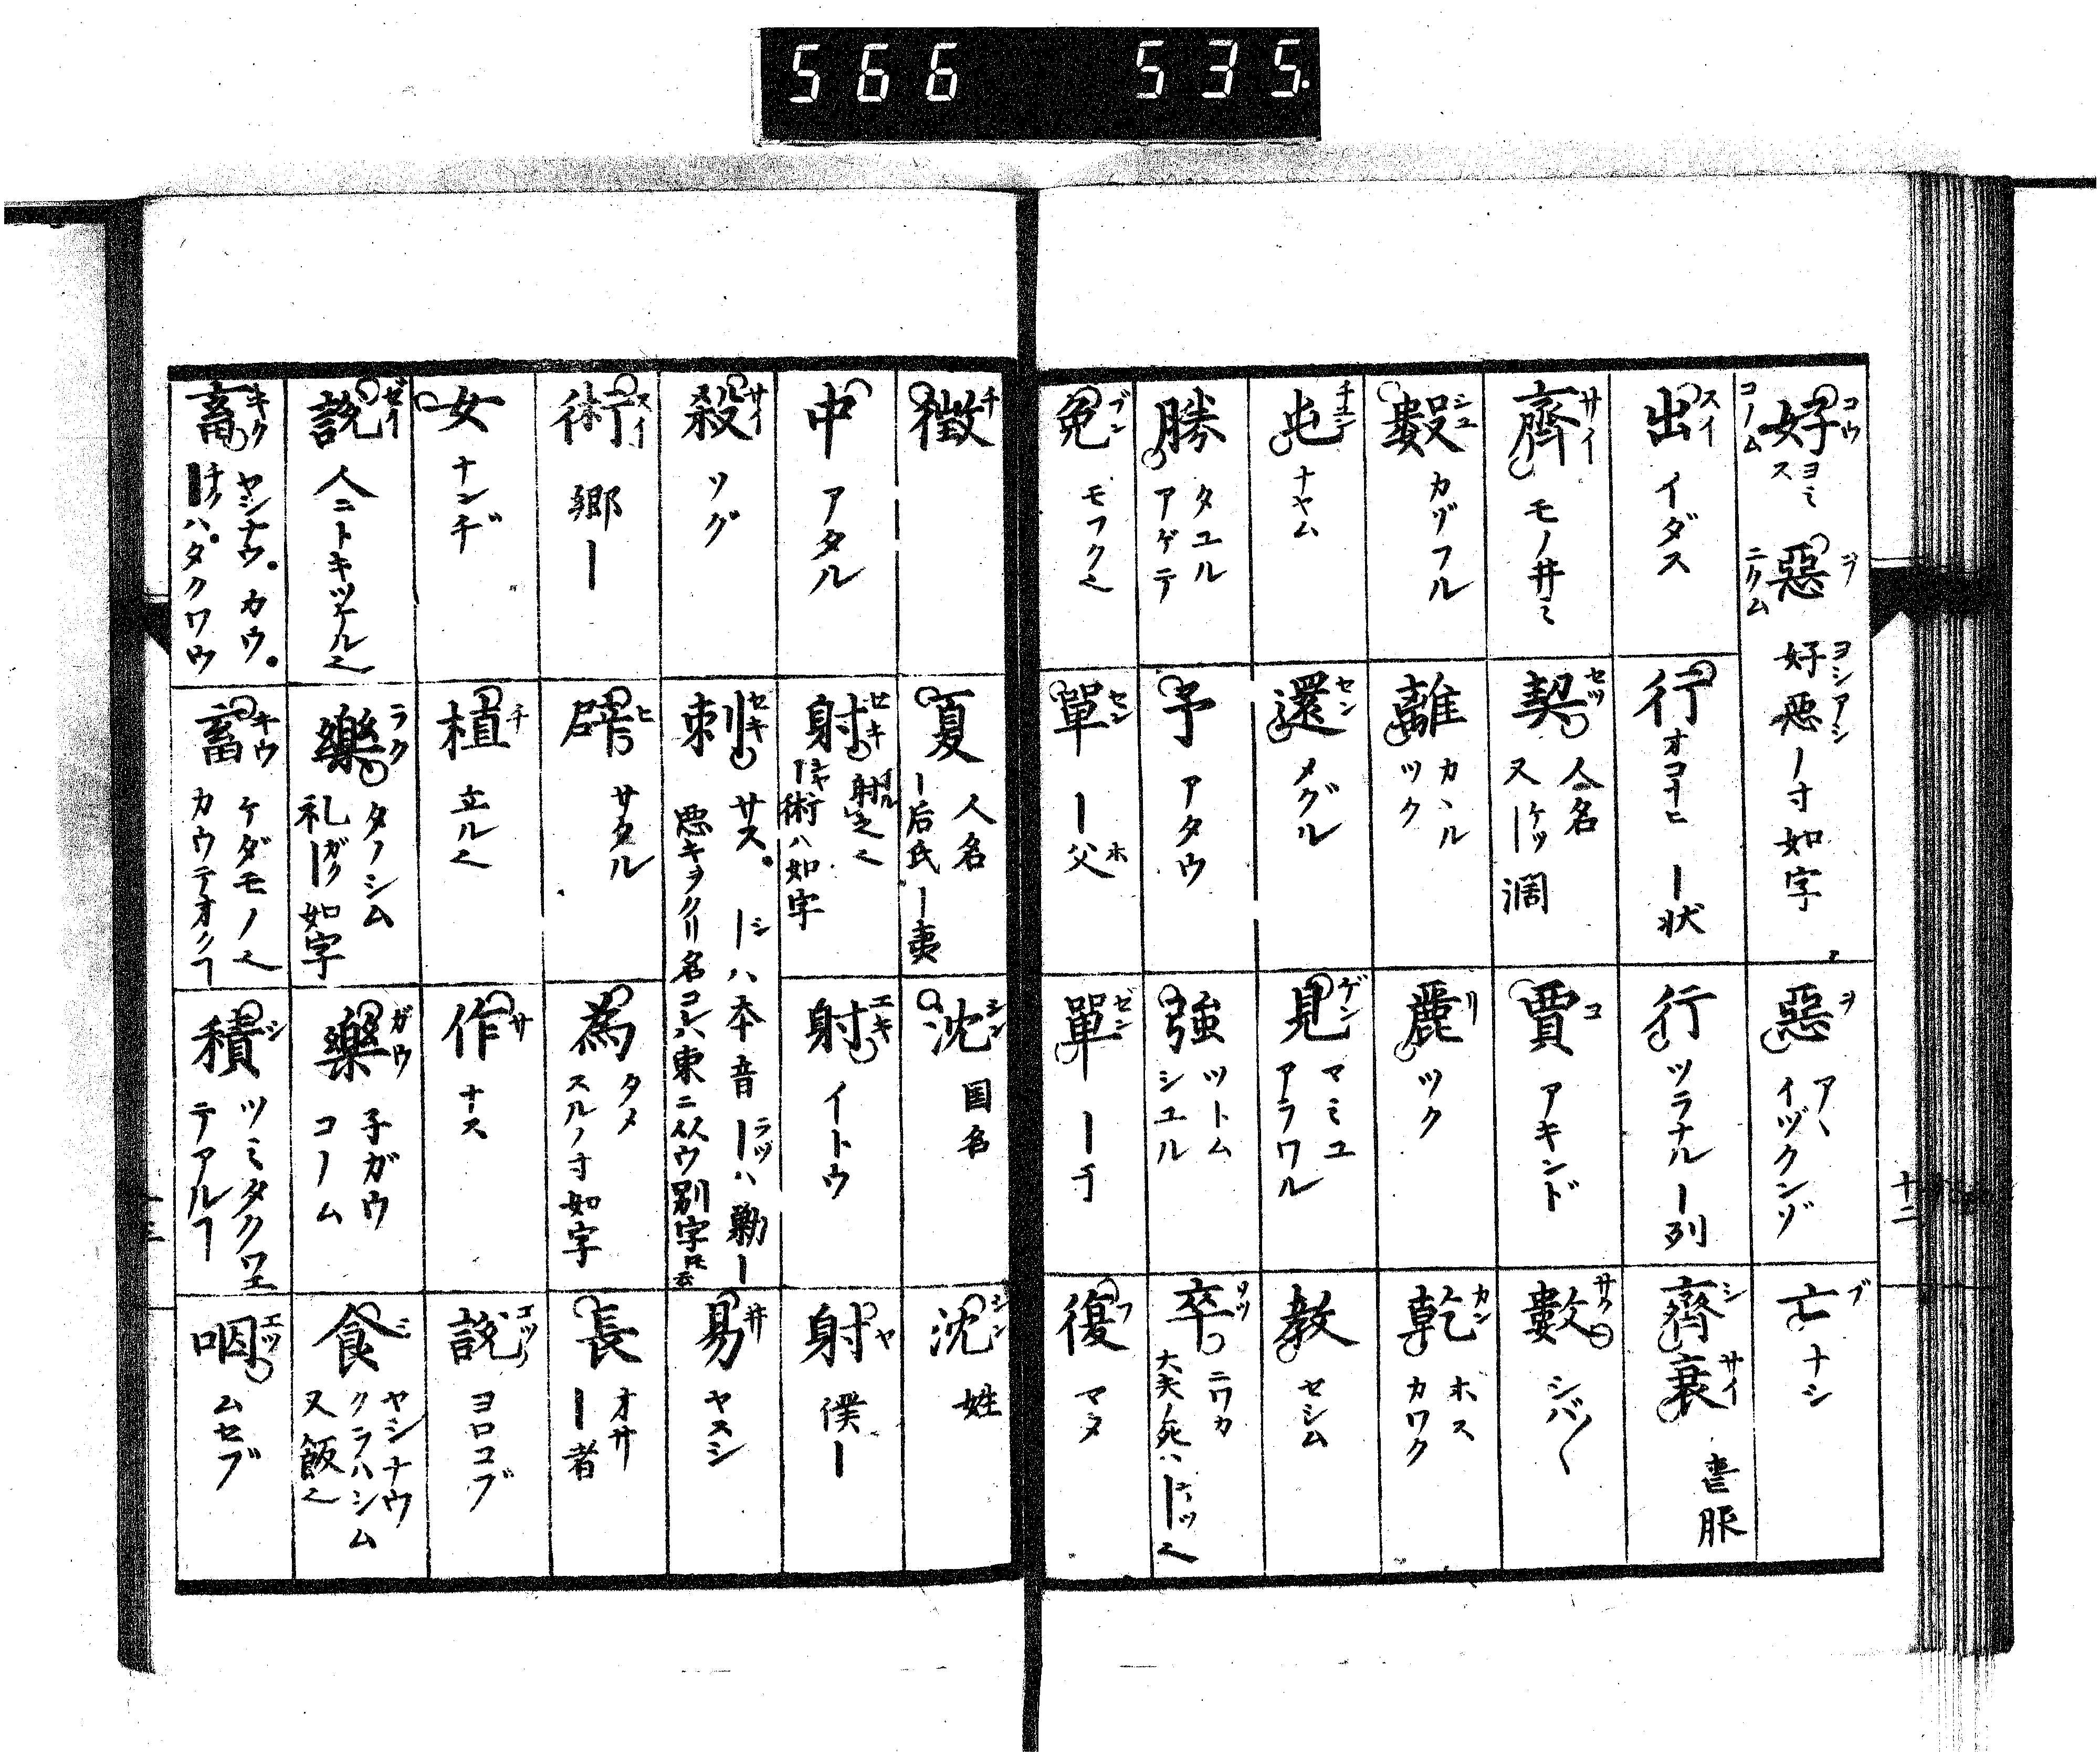 566 535.
好 コウ コノム ヨミス 惡 ヲ ニクム 好惡 ヨシアシ ノ寸如字
惡 ヲ アヽ イヅクンゾ
亡 ブ ナシ
出 スイ イダス
行 オコナヒ ー状
行 ツラナル ー列
齊 シ 衰 サイ 喪服
齊 サイ モノイミ
契 セツ 人名 又ーケツ濶
賈 コ アキンド
數 サク シバ〱
數 シユ カゾフル
離 カヽル ツク
麗 リ ツク
乾 カン ホス カワク
屯 チユン ナヤム
還 セン メグル
見 ゲン マミユ アラワル
教 セシム
勝 タユル アゲテ
予 アタウ
強 ツトム シユル
卒 ソツ ニワカ 大夫ノ死ハーシユツ也
免 ブン モフク也
單 セン ー父 ホ
單 ゼン ー于
復 フ マタ
十二
徴 チ
夏 人名 ー后氏 ー夷
沈 シン 国名
沈 シン 姓
中 アタル
射 セキ 射ル 術ハ如字
射 エキ イトウ
射 ヤ 僕ー
殺 サイ ソグ
刺 セキ サス。 ーシハ本音 ーラツハ勦ー 悪キヲクリ名コレハ東ニ从ウ別字
易 イ ヤスシ
術 スイ 郷ー
辟 ヒ サタル
為 タメ スルノ寸如字
長 オサ ー者
女 ナンヂ
植 チ 立ル也
作 サ ナス
説 エツ ヨロコブ
説 ゼイ 人ニトキツケル也
樂 ラク タノシム 礼ーガク如字
樂 ガウ 子ガウ コノム
食 シ ヤシナウ クラハシム 又飯也
畜 キク ヤシナウ。カウ。 ーチクハ。タクワウ
畜 キウ ケダモノ也 カウテオクヿ
積 シ ツミタクワエ テアルヿ
咽 エツ ムセブ